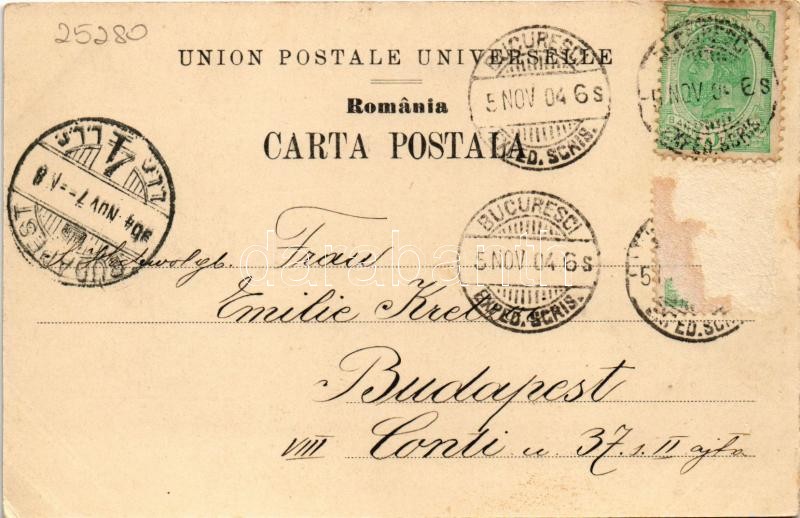 25280
UNION POSTALE UNIVERSELLE
România
CARTA POSTALA
BUCURESCI
5 NOV. 04 6 S
EXPED. SCRIS.
BUCURESCI
5 NOV. 04 6 S
EXPED. SCRIS.
BUCURESCI
5 NOV. 04 6 S
EXPED. SCRIS.
5
EXPED. SCRIS.
904 NOV 7
BUDAPEST
darabanth
Frau
Emilie
Budapest
VIII Conti u. 37. s. II ajtó